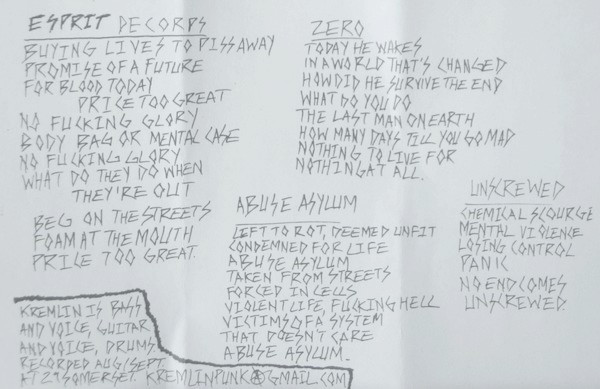 ESPRIT DECORPS
BUYING LIVES TO PISS AWAY
PROMISE OF A FUTURE
FOR BLOOD TODAY
PRICE TOO GREAT
NO FUCKING GLORY
BODY BAG OR MENTAL CASE
NO FUCKING GLORY
WHAT DO THEY DO WHEN
THEY'RE OUT
BEG ON THE STREETS
FOAM AT THE MOUTH
PRICE TOO GREAT.
ZERO
TODAY HE WAKES
IN A WORLD THAT'S CHANGED
HOW DID HE SURVIVE THE END
WHAT DO YOU DO
THE LAST MAN ON EARTH
HOW MANY DAYS TILL YOU GO MAD
NOTHING TO LIVE FOR
NOTHING AT ALL.
ABUSE ASYLUM
LEFT TO ROT, DEEMED UNFIT
CONDEMNED FOR LIFE
ABUSE ASYLUM
TAKEN FROM STREETS
FORCED IN CELLS
VIOLENT LIFE, FUCKING HELL
VICTIMS OF A SYSTEM
THAT DOESN'T CARE
ABUSE ASYLUM.
UNSCREWED
CHEMICAL SCOURGE
MENTAL VIOLENCE
LOSING CONTROL
PANIC
NO END COMES
UNSCREWED.
KREMLIN IS BASS
AND VOICE, GUITAR
AND VOICE, DRUMS.
RECORDED AUG/SEPT.
AT 29 SOMERSET. KREMLINPUNK@GMAIL.COM